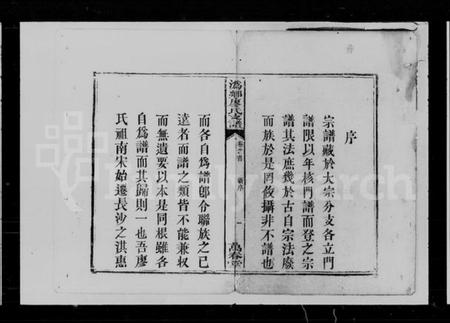 序
宗譜藏於大宗分支各立門
譜限以年核門譜而登之宗
譜其法庶幾於古自宗法廢
而族於是罔攸攝非不譜也
溈鄉廖氏支譜
卷之首
舊序
一
萬春堂
而各自爲譜卽合聯族之已
遠者而譜之類皆不能兼収
而無遺要以本是同根雖各
自爲譜而其歸則一也吾廖
氏祖南宋始遷長沙之淇惠